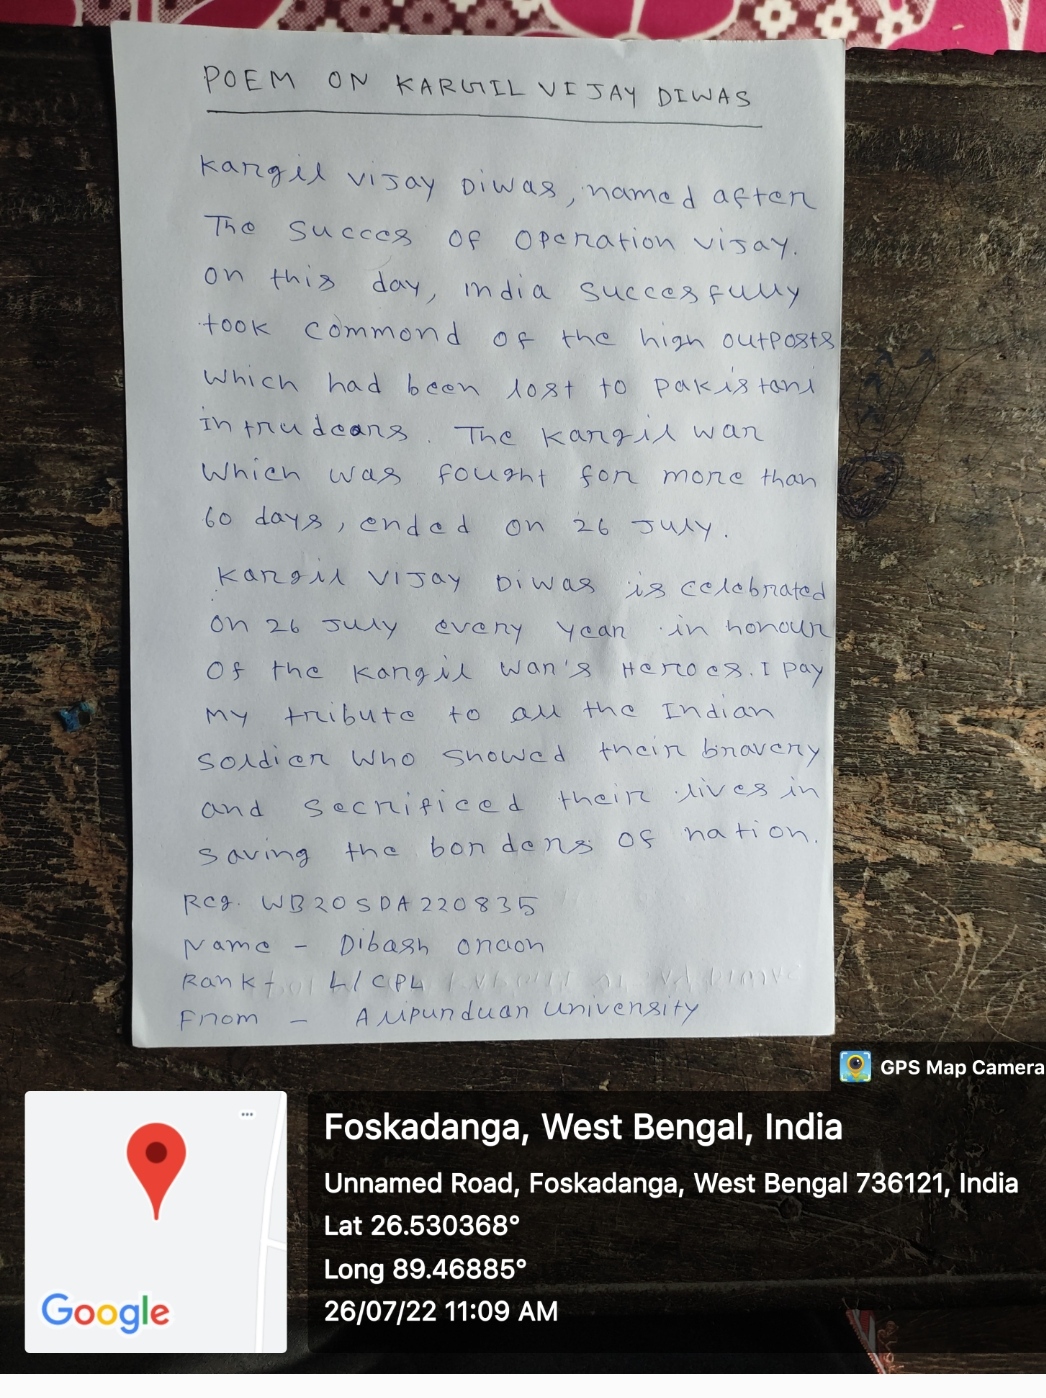 POEM ON KARGIL VIJAY DIWAS
Kargil vijay Diwas, named after
The Succes of Operation vijay.
On this day, india succesfully
took commond of the high outposts
which had been lost to pakistani
intrudears. The Kargil war
which was fought for more than
60 days, ended on 26 July.
Kargil VIJAY Diwas is celebrated
on 26 July every year in honour
of the Kargil War's Heroes. I pay
my tribute to all the Indian
soldier who showed their bravery
and secrificed their lives in
saving the borders of nation.
Reg. WB20SDA220835
Name - Dibash Oraon
Rank - L/CPL
From - Alipurduar University
GPS Map Camera
Foskadanga, West Bengal, India
Unnamed Road, Foskadanga, West Bengal 736121, India
Lat 26.530368°
Long 89.46885°
26/07/22 11:09 AM
Google